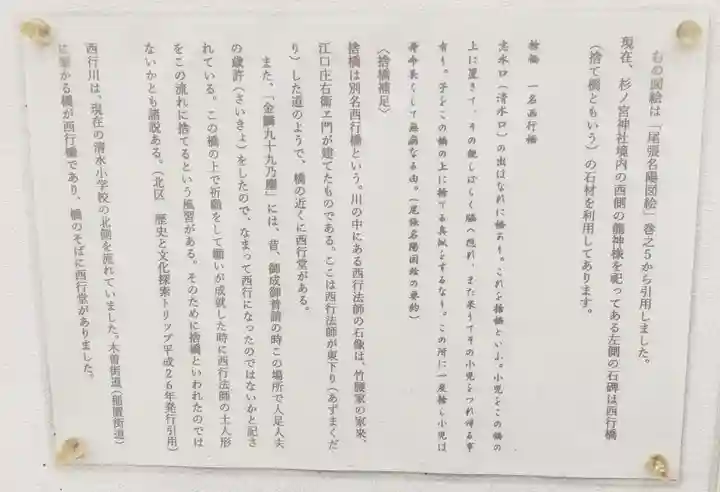 右の図絵は「尾張名陽図絵」巻之5から引用しました。
現在、杉ノ宮神社境内の西側の龍神様を祀ってある左側の石碑は西行橋
（捨て橋ともいう）の石材を利用してあります。
捨橋 一名西行橋
志水口（清水口）の出はなれに橋あり。これを捨橋といふ。小児をこの橋の
上に置きて、その親しばらく脇へ隠れ、また来りてその小児をつれ帰る事
有り。子をこの橋の上に捨てる真似をするなり。この所に一度捨し小児は
寿命長くして無病なる由。（尾張名陽図絵の要約）
〈捨橋補足〉
捨橋は別名西行橋という。川の中にある西行法師の石像は、竹腰家の家来、
江口庄右衛ヱ門が建てたものである。ここは西行法師が東下り（あずまくだ
り）した道のようで、橋の近くに西行堂がある。
また、「金鱗九十九乃塵」には、昔、御成御普請の時この場所で人足人夫
の歳許（さいきよ）をしたので、なまって西行になったのではないかと記さ
れている。この橋の上で祈願をして願いが成就した時に西行法師の土人形
をこの流れに捨てるという風習がある。そのために捨橋といわれたのでは
ないかとも諸説ある。（北区 歴史と文化探索トリップ平成26年発行引用）
西行川は、現在の清水小学校の北側を流れていました。木曽街道（稲置街道）
に架かる橋が西行橋であり、橋のそばに西行堂がありました。